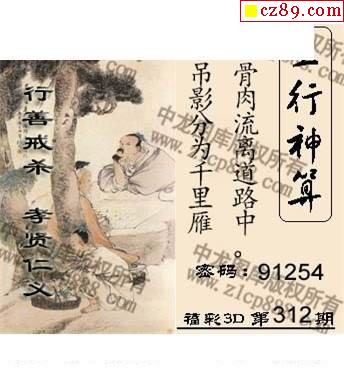 cz89.com
行神算
骨肉流离道路中
吊影分为千里雁。
行善戒杀
孝贤仁义
密码:91254
福彩3D 第312期
中龙图库版权所有
www.z1cp888.com